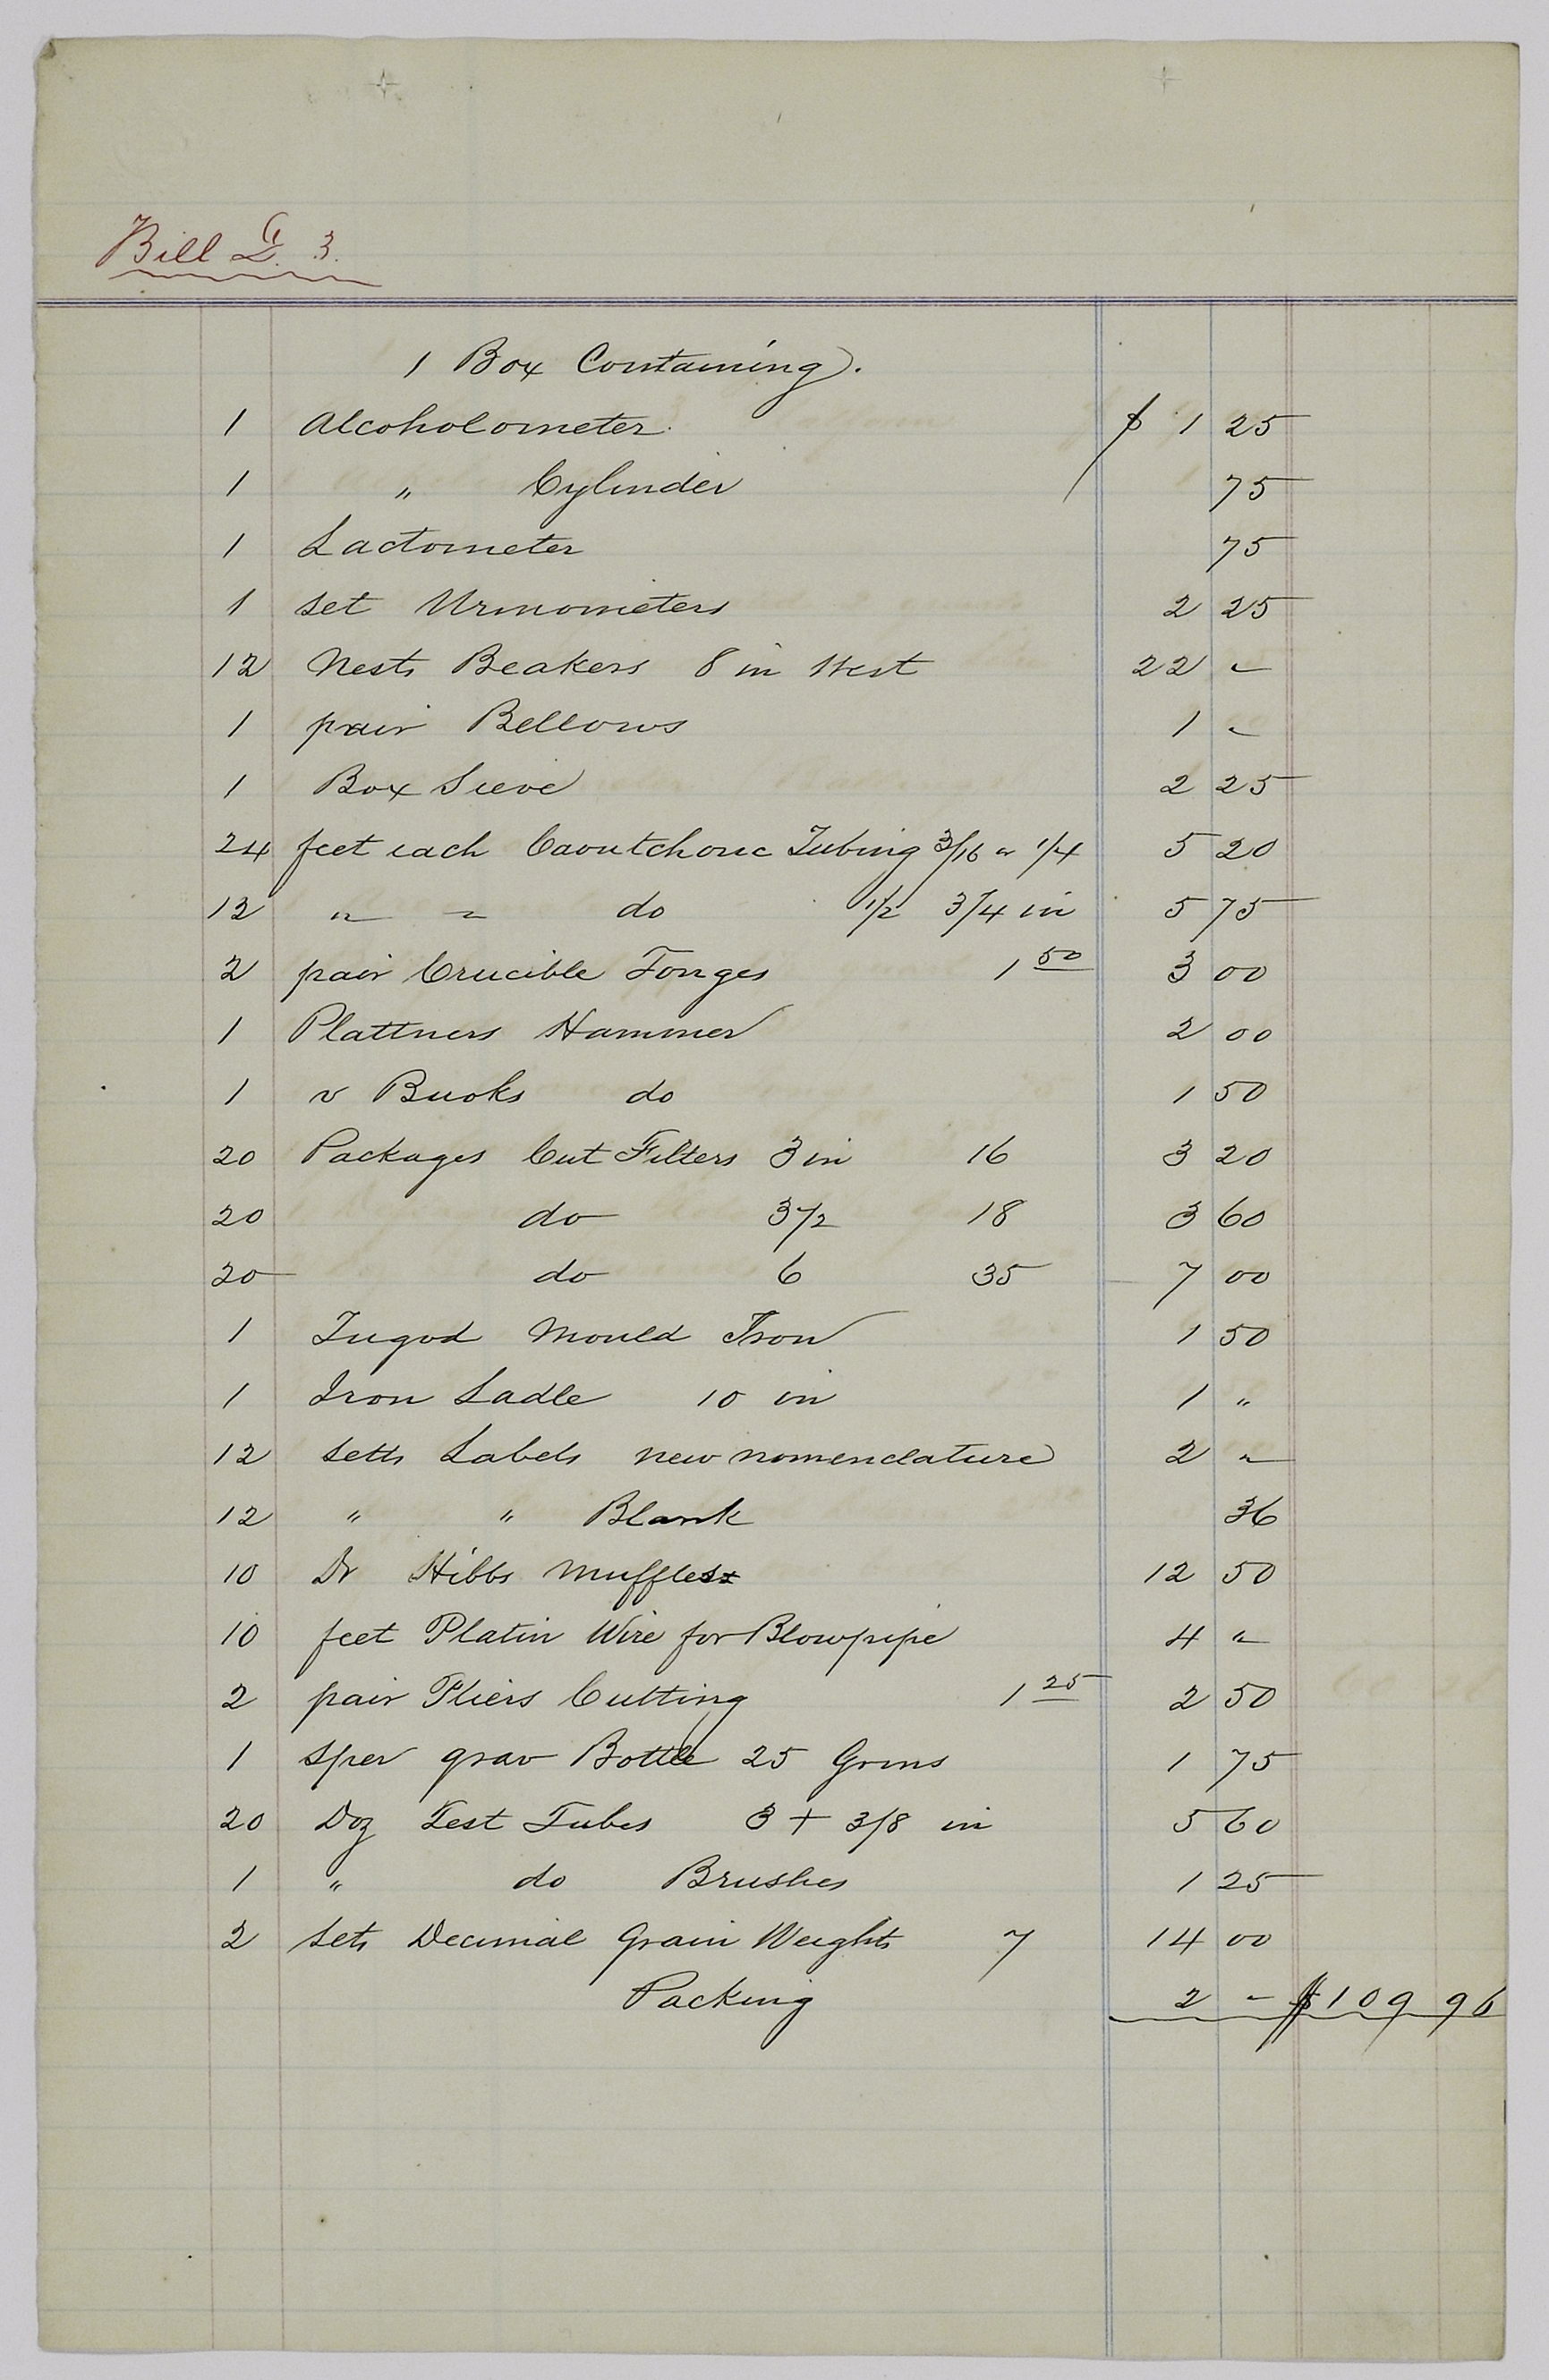 Bill G. 3.
1 Box Containing.
1 Alcoholometer. $ 1 25
1 " Cylinder 75
1 Lactometer 75
1 set Urinometers 2 25
12 Nests Beakers 8 in Nest 22 "
1 pair Bellows 1 "
1 Box Sieve 2 25
24 feet each Caoutchouc Tubing 3/16 " 1/4 5 20
12 " " do 1/2 3/4 in 5 75
2 pair Crucible Tonges 1 50 3 00
1 Plattners Hammer 2 00
1 v Buoks do 1 50
20 Packages Cut Filters 3 in 16 3 20
20 do 3 1/2 18 3 60
20 do 6 35 7 00
1 Ingod Mould Iron 1 50
1 Iron Ladle 10 in 1 "
12 setts Labels new nomenclature 2 "
12 " " Blank 36
10 Dr Hibbs Muffles 12 50
10 feet Platin Wire for Blowpipe 4 "
2 pair Pliers Cutting 1 25 2 50
1 sper grav Bottle 25 Grms 1 75
20 Doz Test Tubes 3 + 3/8 in 5 60
1 " do Brushes 1 25
2 sets Decimal Grain Weights 7 14 00
Packing 2 - $109 96